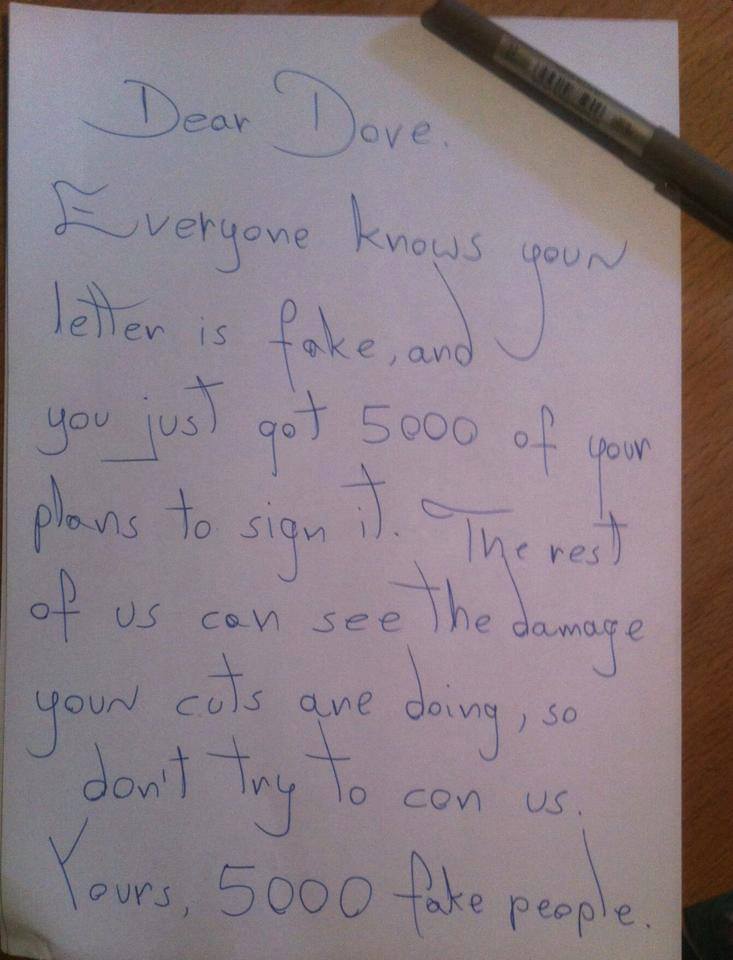 Dear Dove.
Everyone knows your
letter is fake, and
you just got 5000 of your
plans to sign it. The rest
of us can see the damage
your cuts are doing, so
don't try to con us.
Yours, 5000 fake people.